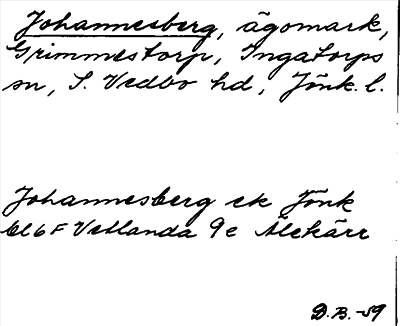 Johannesberg, ägomark,
Grimmestorp, Ingatorps
sn, S. Vedbo hd, Jönk. l.
Johannesberg ek Jönk
bl 6 F Vetlanda 9e Älekärr
D.B. -59